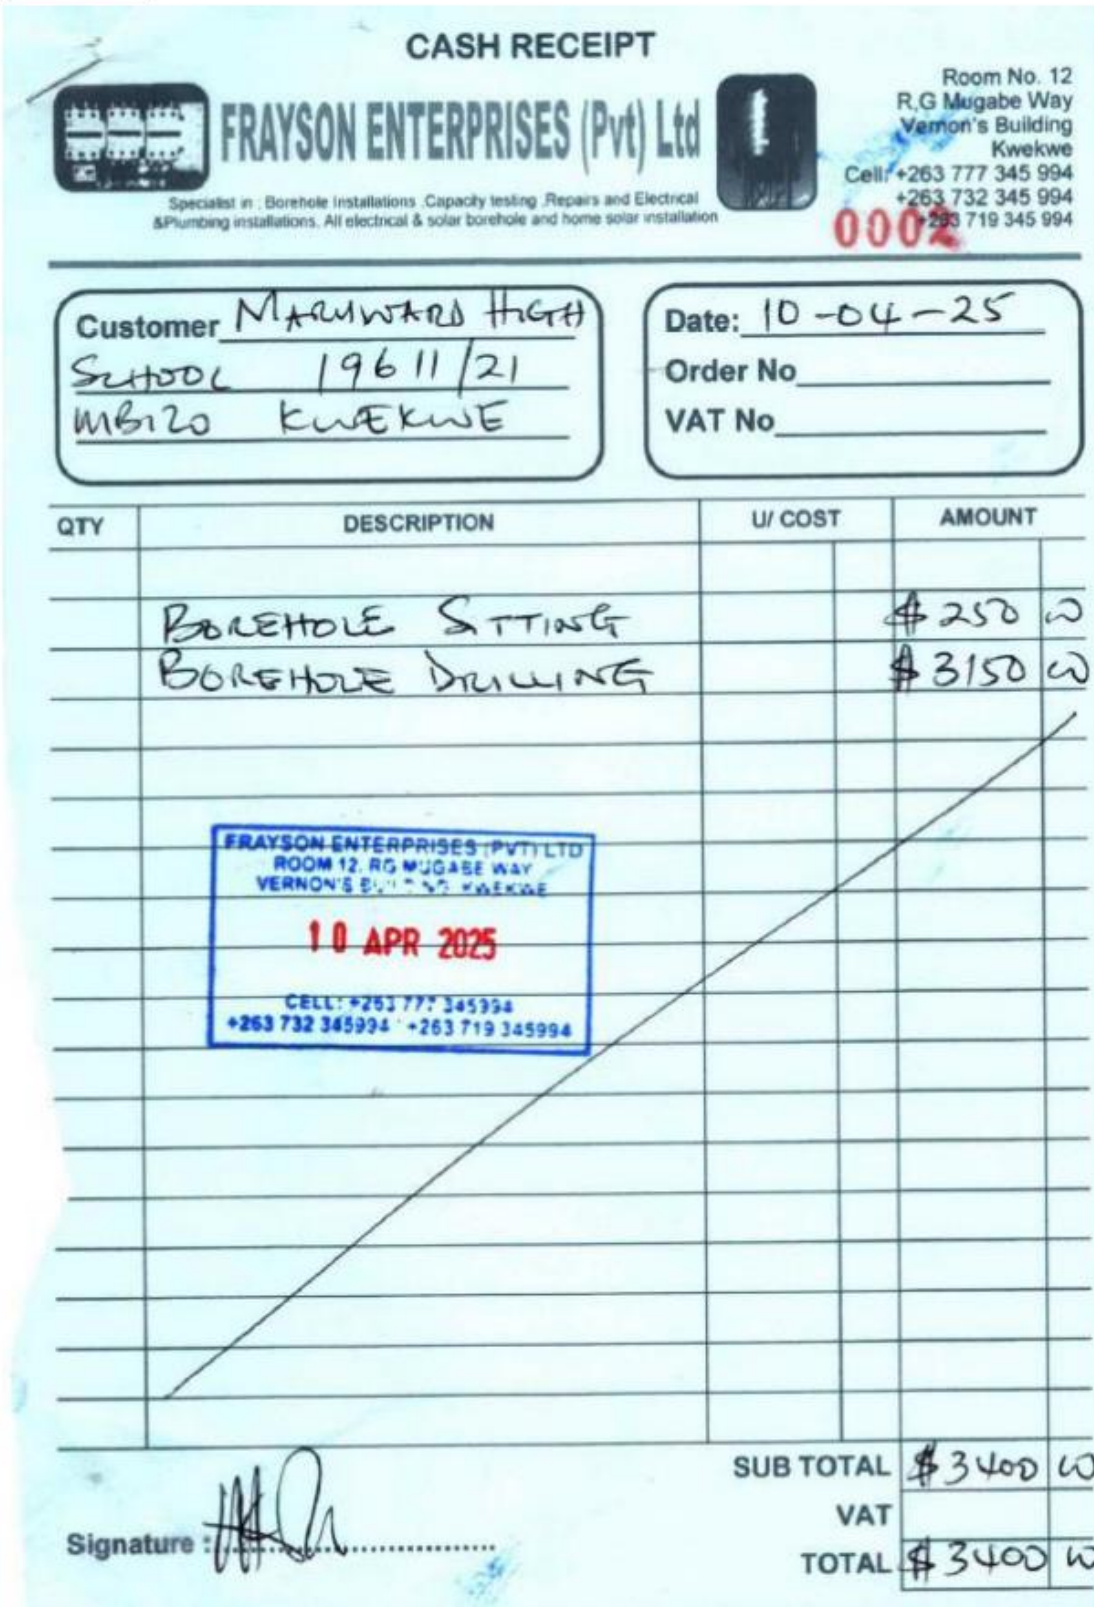 CASH RECEIPT
FRAYSON ENTERPRISES (Pvt) Ltd
Specialist in : Borehole Installations .Capacity testing .Repairs and Electrical
&Plumbing installations. All electrical & solar borehole and home solar installation
Room No. 12
R.G Mugabe Way
Vernon's Building
Kwekwe
Cell: +263 777 345 994
+263 732 345 994
+263 719 345 994
0002
Customer MARYWARD HIGH
SCHOOL 19611/21
MBIZO KWEKWE
Date: 10-04-25
Order No
VAT No
QTY DESCRIPTION U/ COST AMOUNT
BOREHOLE SITTING $250 00
BOREHOLE DRILLING $3150 00
FRAYSON ENTERPRISES (PVT) LTD
ROOM 12, RG MUGABE WAY
VERNON'S BUILDING KWEKWE
10 APR 2025
CELL: +263 777 345994
+263 732 345994 +263 719 345994
SUB TOTAL $3400 00
VAT
Signature :
TOTAL $3400 00